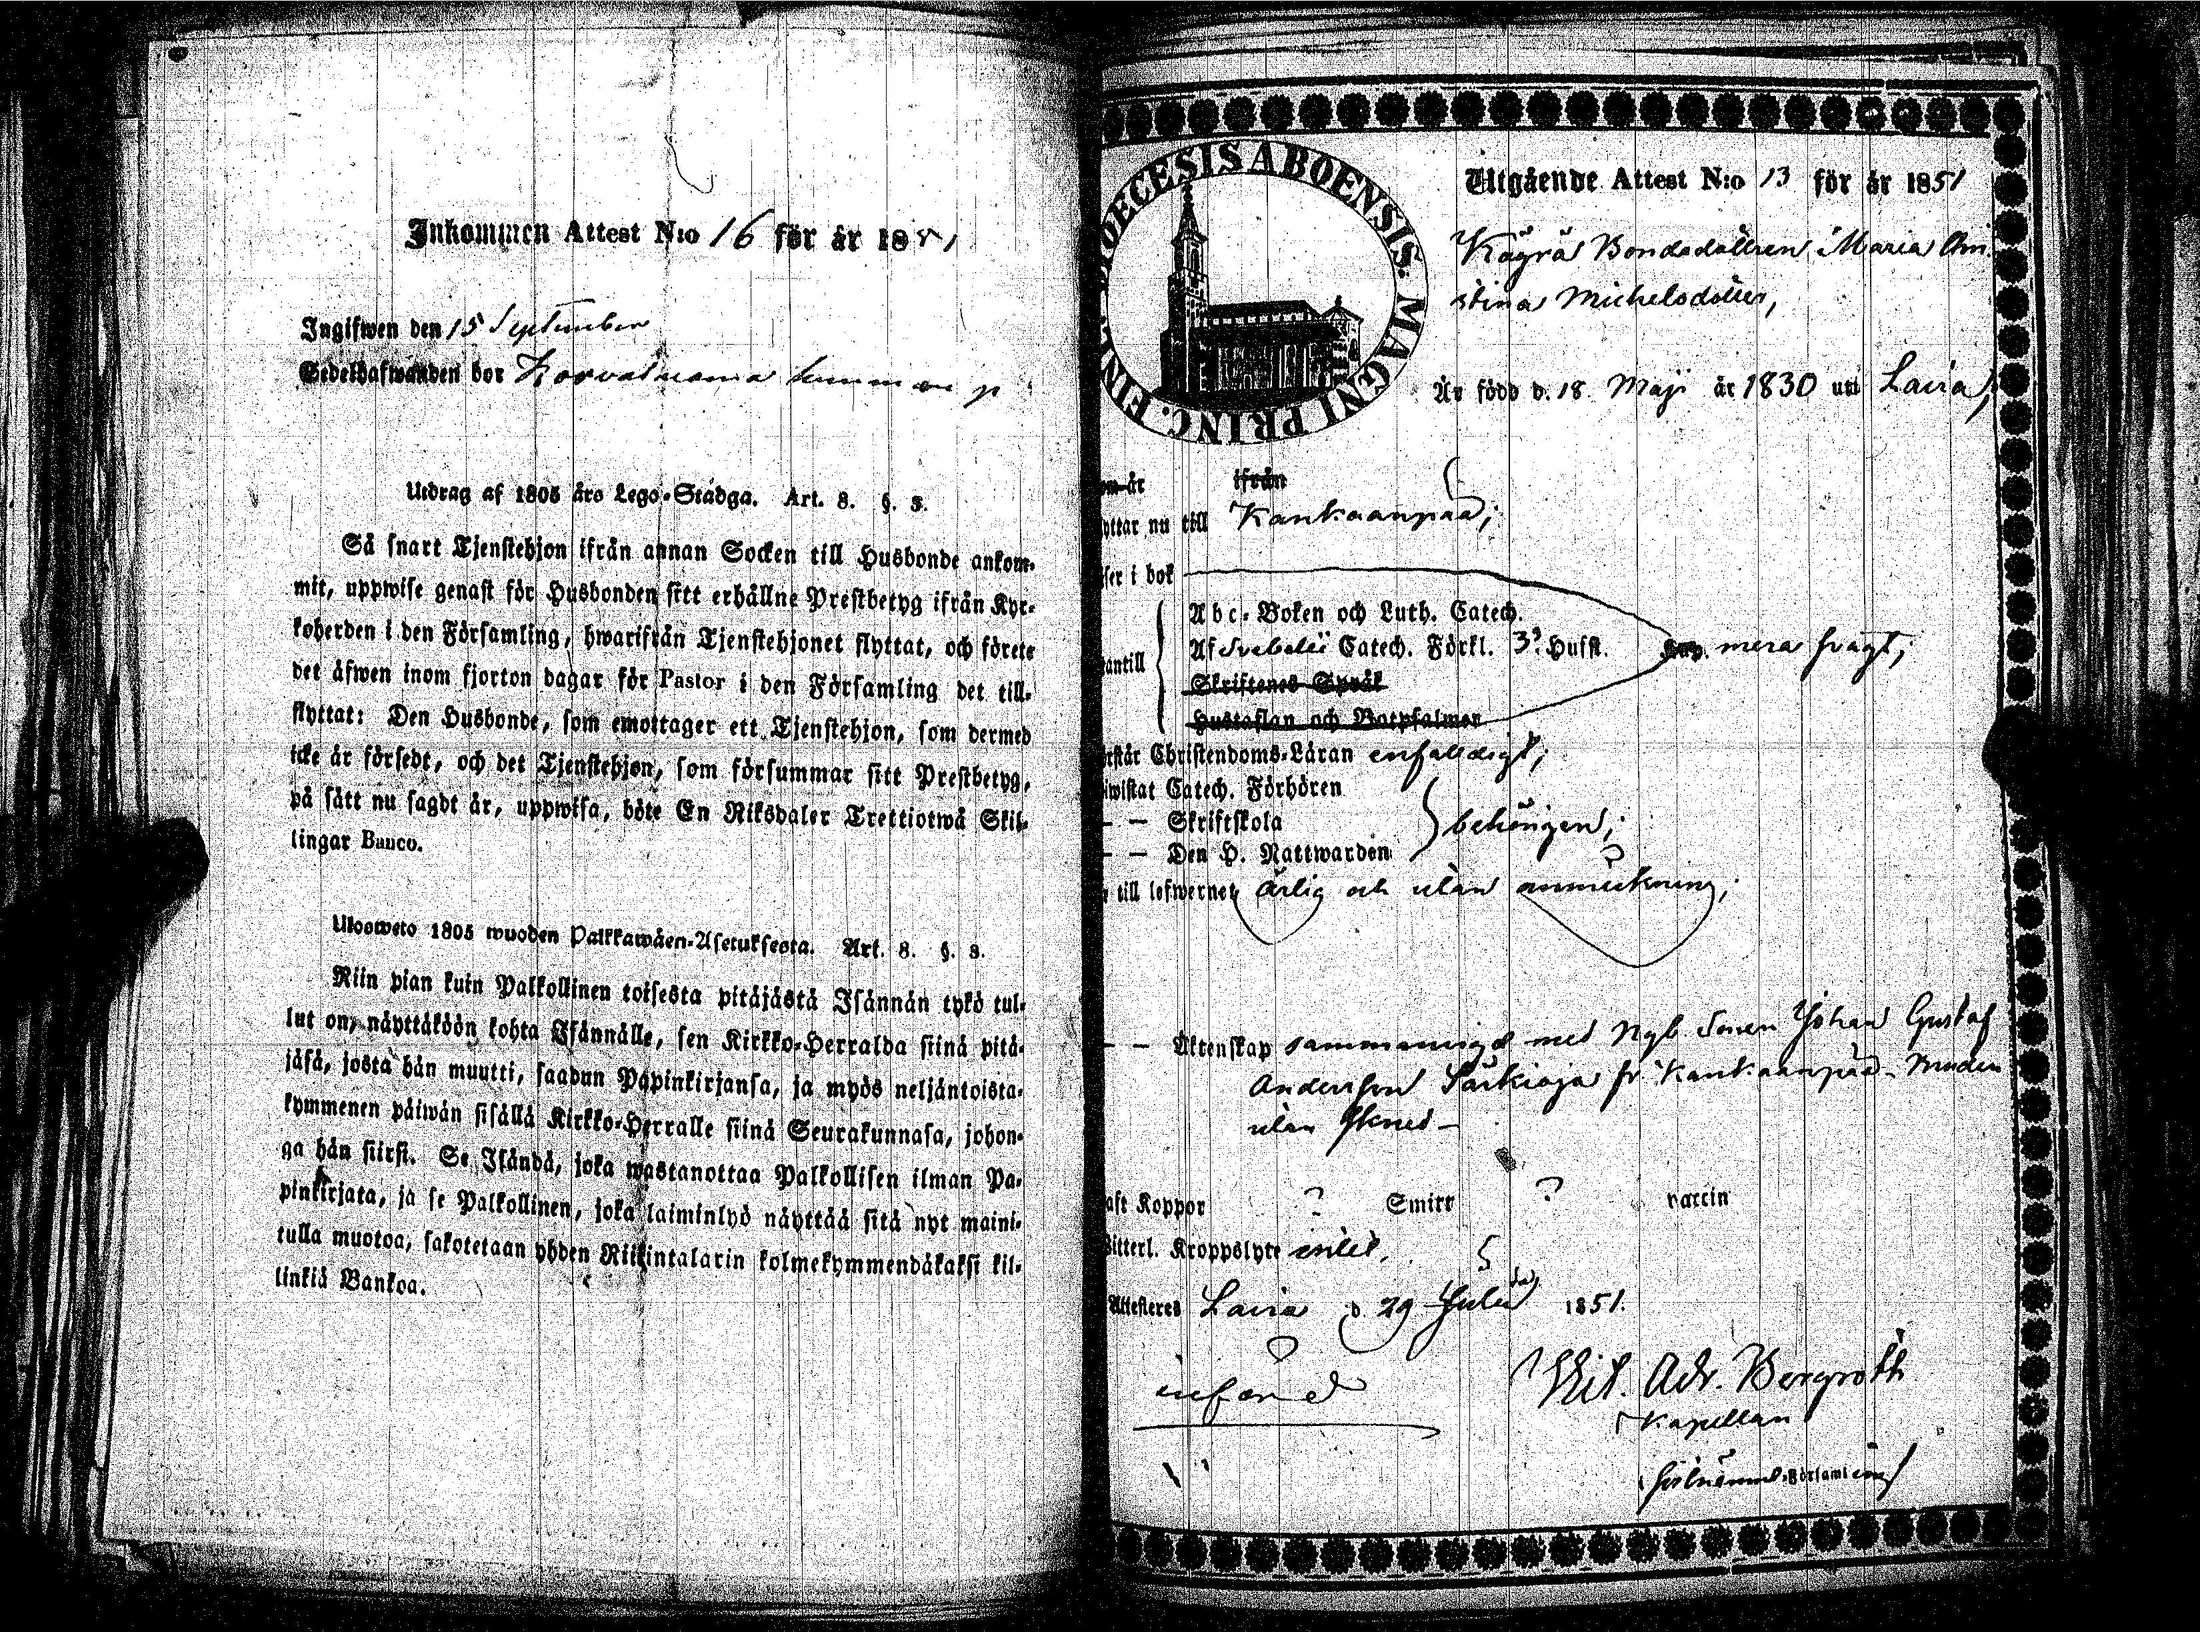 Inkommen Attest N:o 16 för år 1851
Ingifwen den 15 September
Sedelhafwanden bor
Utdrag af 1805 års Lego-Stadga. Art. 8. §. 3.
Så snart Tjenstehjon ifrån annan Socken till Husbonde ankom-
mit, uppwise genast för Husbonden sitt erhållne Prestbetyg ifrån Kyr-
koherden i den Församling, hwarifrån Tjenstehjonet flyttat, och förete
det äfwen inom fjorton dagar för Pastor i den Församling det till-
flyttat: Den Husbonde, som emottager ett Tjenstehjon, som dermed
icke är försedt, och det Tjenstehjon, som försummar sitt Prestbetyg,
på sätt nu sagdt är, uppwisa, böte En Riksdaler Trettiotwå Skil-
lingar Banco.
Ulosweto 1805 wuoden Palkkawäen-Asetuksesta. Art. 8. §. 3.
Niin pian kuin Palkollinen toisesta pitäjästä Isännän tykö tul-
lut on, näyttäköön kohta Isännälle, sen Kirkko-Herralda siinä pitä-
jäsä, josta hän muutti, saadun Papinkirjansa, ja myös neljäntoista-
kymmenen päiwän sisällä Kirkko-Herralle siinä Seurakunnasa, johon-
ga hän siirsi. Se Isändä, joka wastanottaa Palkollisen ilman Pa-
pinkirjata, ja se Palkollinen, joka laiminlyö näyttää sitä nyt maini-
tulla muotoa, sakotetaan yhden Riikintalarin kolmekymmendäkaksi kil-
linkiä Bankoa.
DIOECESIS ABOENSIS. MAGNI PRINC. FINL.
Utgående Attest N:o 13 för år 1851
Kägrä Bondedottren Maria Chri
stina Michelsdotter,
Är född d. 18 Maji år 1830 uti Lavia,
om år ifrån
yttar nu till Kankaanpää;
ser i bok
antill
Abc-Boken och Luth. Catech.
Af Svebelii Catech. Förkl. 3 Husst. mera svagt;
Skriftenes Språk
Hustaflan och Botpsalmer
rstår Christendoms-Läran enfaldigt;
iwistat Catech. Förhören
— — Skriftskola behörigen;
— — Den H. Nattwarden
till lefwernet ärlig och utan anmärkning;
— — Äktenskap sammanvigd med Ngb. Sonen Johan Gustaf
Andersson Särkioja fr. Kankaanpää
utan
aft Koppor ? Smitt ? vaccin
itterl. Kroppslyte intet,
Attesteres Lavia d 29 Julii 1851.
införd
Vit. Adr. Bergroth
Kapellan
Församling